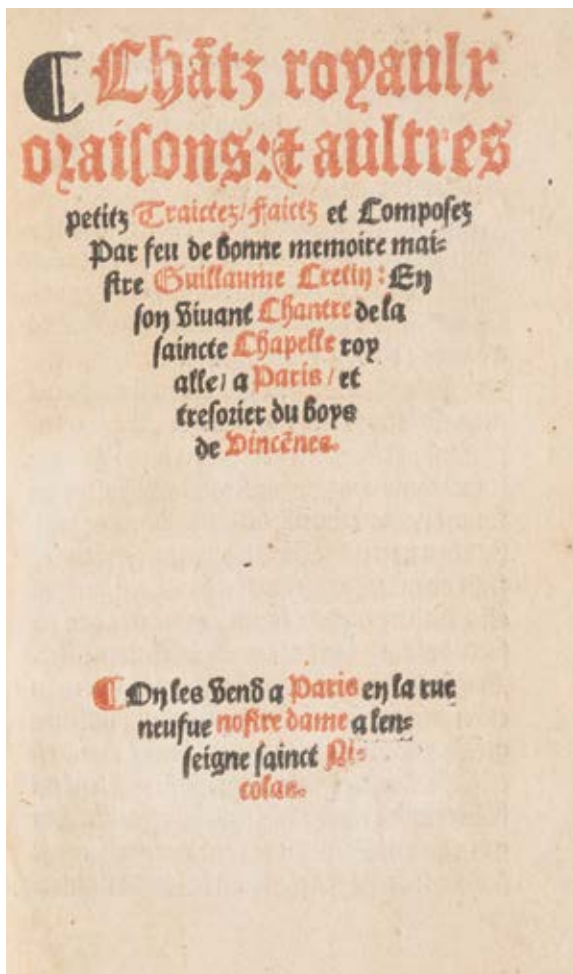 ¶ Chãtz royaulx
oraisons: & aultres
petitz Traictez/ faictz et Composez
Par feu de bonne memoire mai=
stre Guillaume Cretin: En
son vivant Chantre de la
saincte Chapelle roy
alle/ a Paris/ et
tresorier du boys
de Vincẽnes.
¶ On les vend a Paris en la rue
neufue nostre dame a len=
seigne sainct Ni=
colas.